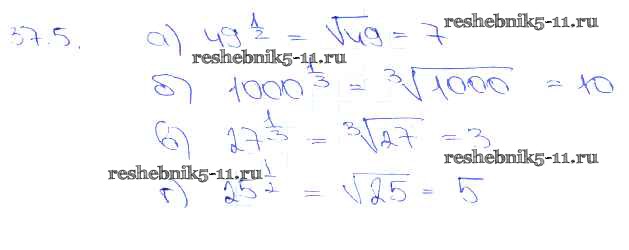 37.5. а) 49^{1/2} = √49 = 7 reshebnik5-11.ru
reshebnik5-11.ru
б) 1000^{1/3} = ∛1000 = 10
в) 27^{1/3} = ∛27 = 3 reshebnik5-11.ru
reshebnik5-11.ru
г) 25^{1/2} = √25 = 5